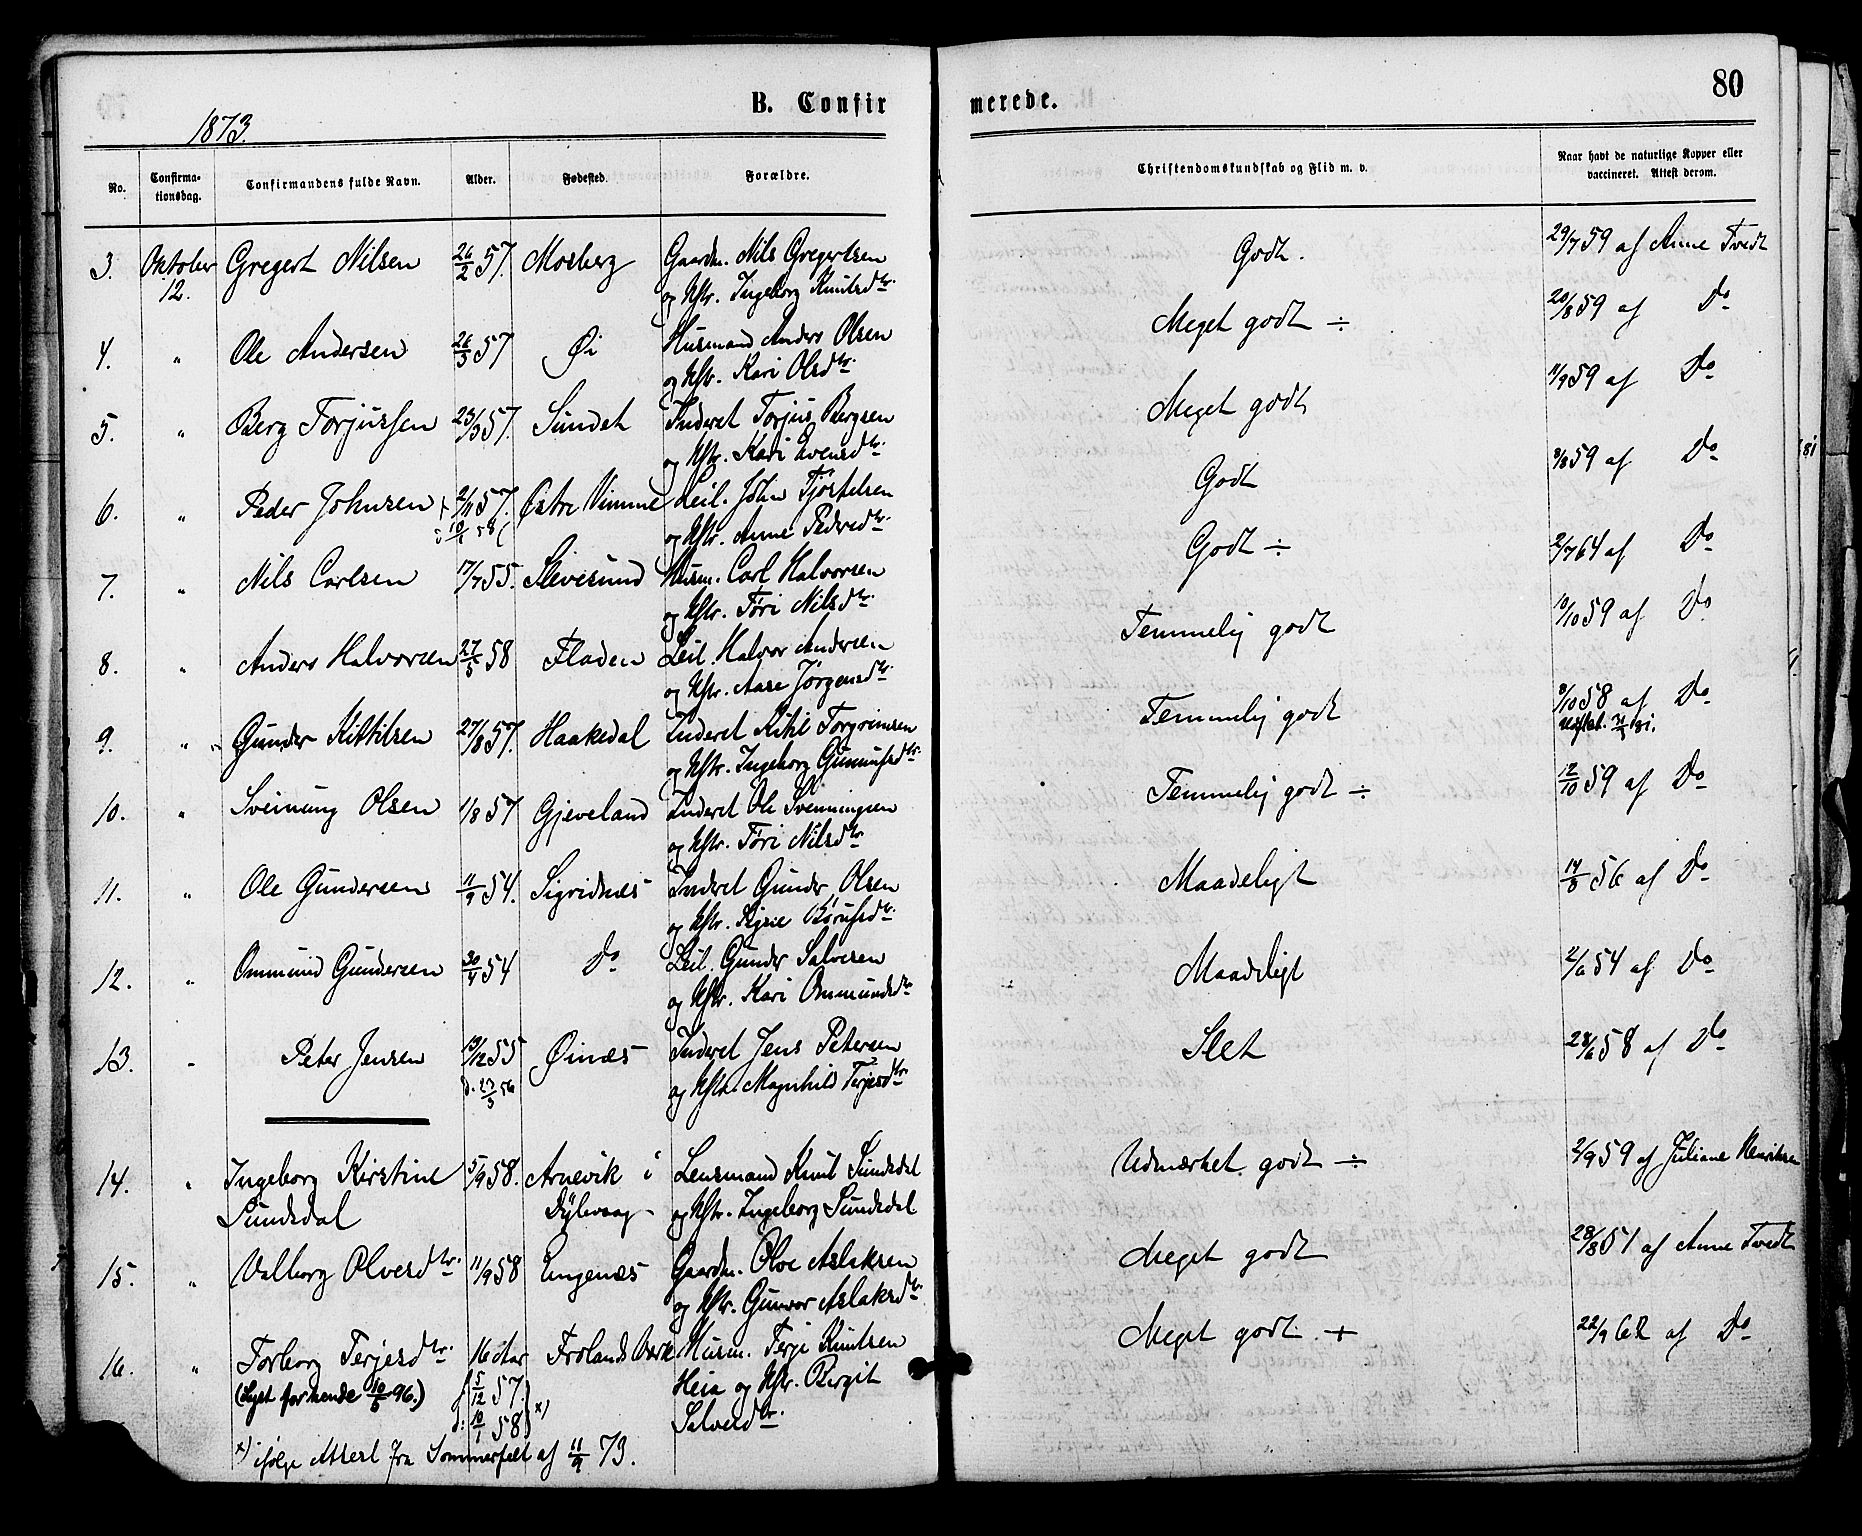 80
B. Confirmerede.
1873.
No. Confirmationsdag. Confirmandens fulde Navn. Alder. Fødested. Forældre. Christendomskundskab og Flid m. v. Naar havt de naturlige Kopper eller vaccineret. Attest derom.
3. Oktober 12. Gregert Nilsen 26/2 57. Mosberg Gaardm. Nils Gregertsen Godt. 29/7 59 af Anne Tvedt
og Hstr. Ingeborg Knutsdtr.
4. " Ole Andersen 26/3 57 Øi Husmand Anders Olsen Meget godt ÷ 20/8 59 af Do
og Hstr. Kari Olsdtr.
5. " Berg Torjussen 23/3 57. Sundet Inderst Torjus Bergsen Meget godt 11/9 59 af Do
og Hstr. Kari Evensdtr.
6. " Peder Johnsen 2/11 57. Østre Vimme Leil. John Tjøstelsen Godt 8/8 59 af Do
10/1 58 og Hstr. Anne Pedersdtr.
7. " Nils Carlsen 17/7 55. Slevesund Husm. Carl Halvorsen Godt ÷ 2/7 64 af Do
og Hstr. Tøri Nilsdtr.
8. " Anders Halvorsen 27/5 58 Fladen Leil. Halvor Andersen Temmelig godt 10/10 59 af Do
og Hstr. Aase Jørgensdtr.
9. " Gunder Kittilsen 27/8 57. Haakedal Inderst Kitil Torgrimsen Temmelig godt 8/10 58 af Do
og Hstr. Ingeborg Gunnufsdtr.
10. " Sveinung Olsen 1/8 57 Gjeveland Inderst Ole Svenningsen Temmelig godt ÷ 12/10 59 af Do
og Hstr. Tøri Nilsdtr.
11. " Ole Gundersen 11/9 54. Sigridnæs Inderst Gunder Olsen Maadeligt 14/8 56 af Do
og Hstr. Signe Børufsdtr.
12. " Ommund Gundersen 30/4 54 Do Leil. Gunder Salvesen Maadeligt 2/6 54 af Do
og Hstr. Kari Ommundsdtr
13. " Peter Jensen 19/12 55 Øinæs Inderst Jens Petersen Slet 28/6 58 af Do
d. 23/3 56 og Hstr. Magnhild Terjesdtr
14. " Ingeborg Kirstine 5/9 58. Arnevik i Lensmand Knut Sundsdal Udmærket godt ÷ 2/9 59 af Juliane Henriksen
Sundsdal Dybvaag og Hstr. Ingeborg Sundsdal
15. " Valborg Olvesdtr. 11/9 58 Engenæs Gaardm. Olve Aslaksen Meget godt 28/8 61 af Anne Tvedt
og Hstr. Gunvor Aslaksdtr.
16. " Torborg Terjesdtr. 16 Aar Frolands Værk Husm. Terje Knutsen Meget godt + 22/9 62 af Do
(Lyst for hende 10/5 96.) f. 5/12 57. Heia og Hstr. Birgit
d. 10/1 58 x) Salvesdtr.
x) ifølge Attest fra Sommerfelt af 11/9 73.